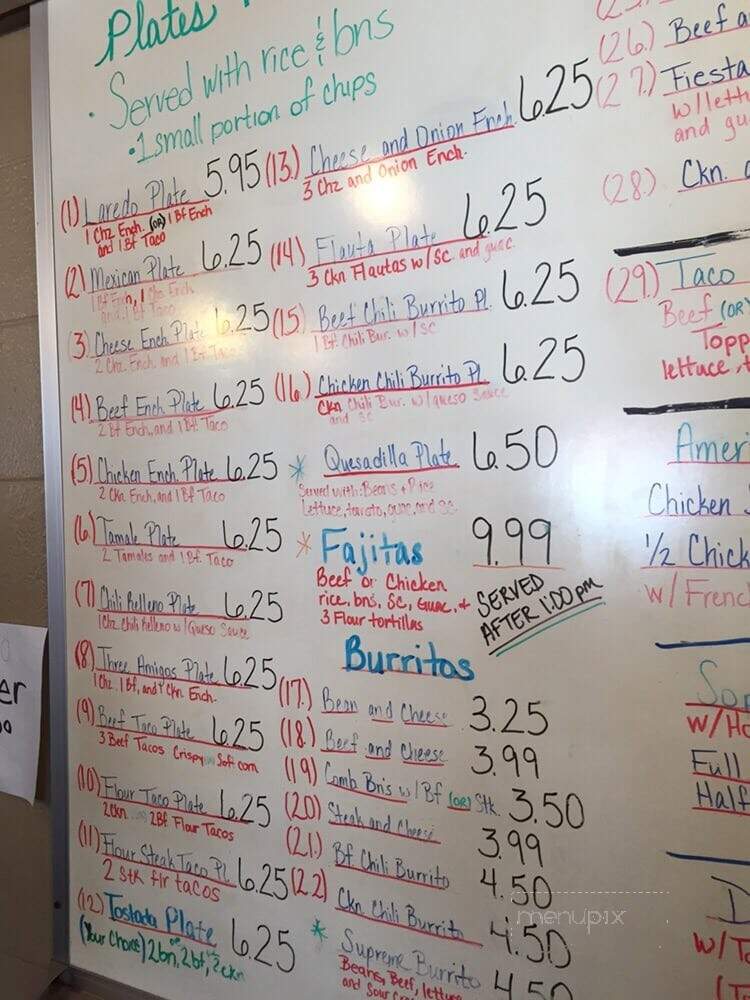 Plates
· Served with rice & bns
· 1 small portion of chips
(1) Laredo Plate 5.95
1 Chz Ench. (OR) 1 Bf Ench
and 1 Bf Taco
(2) Mexican Plate 6.25
1 Bf Ench, 1 Chz Ench
and 1 Bf Taco
(3) Cheese Ench Plate 6.25
2 Chz Ench. and 1 Bf Taco
(4) Beef Ench Plate 6.25
2 Bf Ench, and 1 Bf. Taco
(5) Chicken Ench. Plate 6.25
2 Ckn Ench, and 1 Bf Taco
(6) Tamale Plate 6.25
2 Tamales and 1 Bf. Taco
(7) Chili Relleno Plate 6.25
1 Chz Chili Relleno w/ Queso Sauce
(8) Three Amigos Plate 6.25
1 Chz. 1 Bf, and 1 Ckn Ench.
(9) Beef Taco Plate 6.25
3 Beef Tacos Crispy Soft corn
(10) Flour Taco Plate 6.25
2 Ckn 2 Bf Flour Tacos
(11) Flour Steak Taco Pl. 6.25
2 Stk flr tacos
(12) Tostada Plate 6.25
(Your Choice) 2 bn, 2 bf, 2 ckn
(13.) Cheese and Onion Ench. 6.25
3 Chz and Onion Ench.
(14) Flauta Plate 6.25
3 Ckn Flautas w/ Sc. and guac.
(15) Beef Chili Burrito Pl. 6.25
1 Bf. Chili Bur. w/ SC
(16) Chicken Chili Burrito Pl. 6.25
Ckn Chili Bur. w/ queso Sauce
and SC
* Quesadilla Plate 6.50
Served with: Beans + Rice
Lettuce, tomato, guac, and SC
* Fajitas 9.99
Beef or Chicken
rice, bns, SC, Guac, +
3 Flour tortillas
SERVED
AFTER 1:00 pm
Burritos
(17.) Bean and Cheese 3.25
(18.) Beef and Cheese 3.99
(19) Comb Bns w/ Bf (OR) Stk. 3.50
(20) Steak and Cheese 3.99
(21.) Bf Chili Burrito 4.50
(22) Ckn Chili Burrito 4.50
* Supreme Burrito 4.50
Beans, Beef, lettuce
and Sour
(26.) Beef
(27.) Fiesta
w/ lett
and gu
(28.) Ckn.
(29.) Taco
Beef (OR)
Topp
lettuce,
Ameri
Chicken
1/2 Chick
w/ Frenc
Sop
w/
Full
Half
w/
er
menupix